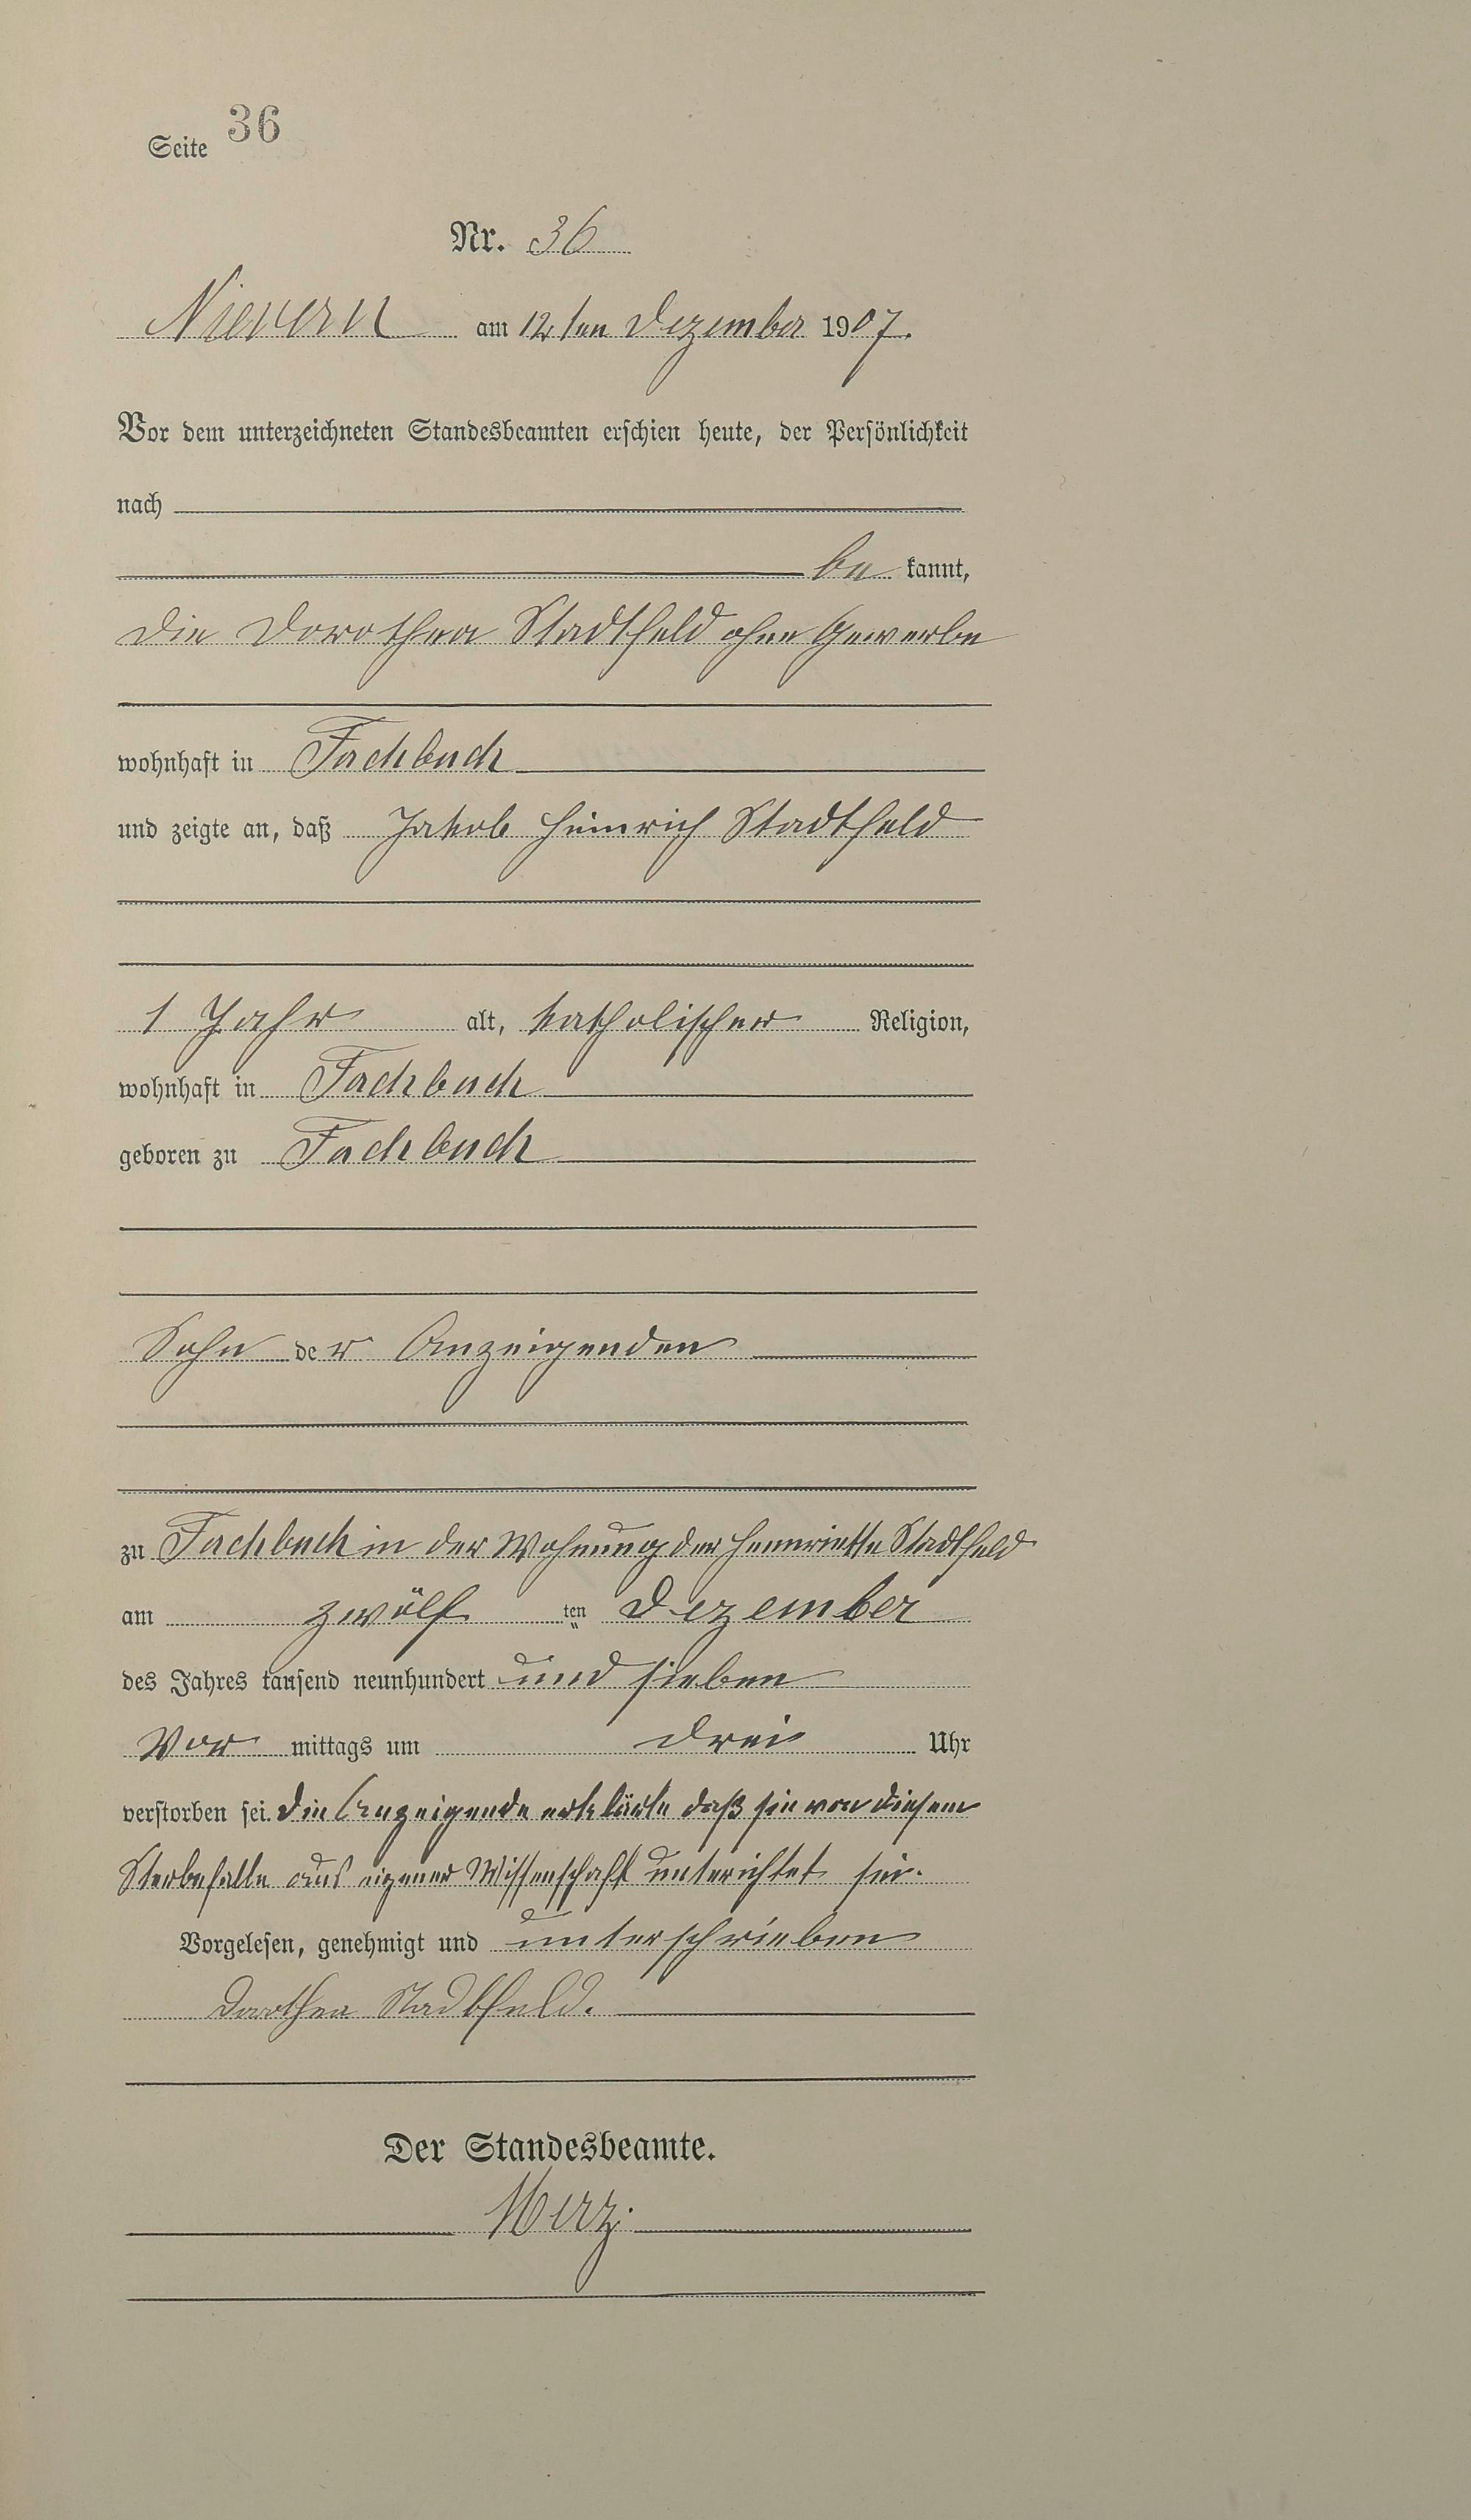 Seite 36
Nr. 36
Nievern am 12ten Dezember 1907.
Vor dem unterzeichneten Standesbeamten erschien heute, der Persönlichkeit
nach
be kannt,
die Dorothea Stadtfeld ohne Gewerbe
wohnhaft in Fachbach
und zeigte an, daß Jakob Heinrich Stadtfeld
1 Jahr alt, katholischer Religion,
wohnhaft in Fachbach
geboren zu Fachbach
Sohn der Anzeigenden
zu Fachbach in der Wohnung der Henriette Stadtfeld
am zwölf ten Dezember
des Jahres tausend neunhundert und sieben
Vor mittags um drei Uhr
verstorben sei. Die Anzeigende erklärte daß sie von diesem
Sterbefalle aus eigener Wissenschaft unterichtet sei.
Vorgelesen, genehmigt und unterschrieben
Dorthea Stadtfeld.
Der Standesbeamte.
Merz.